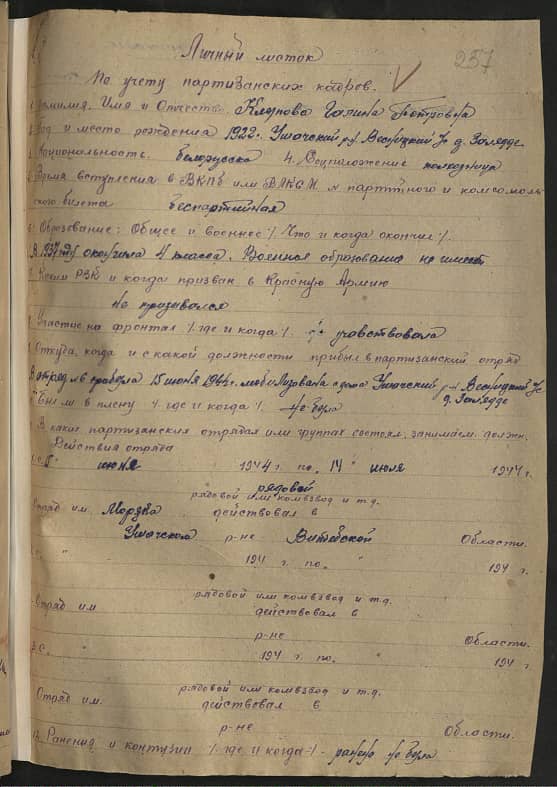 237
Личный листок
По учету партизанских кадров.
Фамилия, Имя и Отчество Галина Петровна
Год и место рождения 1922г. Ушачский р-н
Национальность. белорусска 4. Соцположение колхозница
Время вступления в ВКПб или ВЛКСМ, № партийного и комсомоль-
ского билета беспартийная
Образование: Общее и военное /. Что и когда окончил /.
В 1937 году окончила 4 класса. Военного образования не имеет
Каким РВК и когда призван в Красную Армию
не призывался
Участие на фронтах /. где и когда /. не участвовала
Откуда, когда и с какой должности прибыл в партизанский отряд
В отряд прибыла 15 июня 1944г. мобилизована Ушачский р-н
Был ли в плену /. где и когда /. не была
В каких партизанских отрядах или группах состоял, занимаем. должн.
Действия отряда
июня 1944 г. по „ 14 " июля 1944 г.
рядовой
рядовой или комвзвод и т.д.
Отряд им. действовал в
Ушачском р-не Витебской Области.
" " 194 г. по „ " 194 г.
рядовой или комвзвод и т.д.
Отряд им действовал в
р-не Области.
с. " 194 г. по „ " 194 г.
рядовой или комвзвод и т.д.
Отряд им. действовал в
р-не Области.
12. Ранения и контузии /. где и когда /. ранена не была